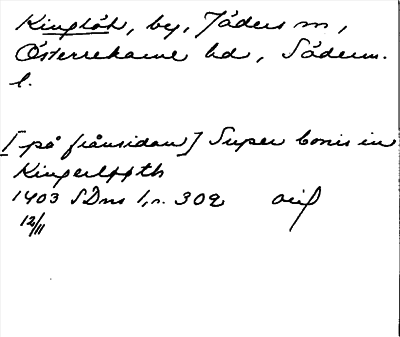 Kinglöt, by, Jäders sn,
Österrekarne hd, Söderm.
l.
[på frånsidan] Super bonis in
Kingerlppth
1403 SDns 1, n. 302 orig
12/11